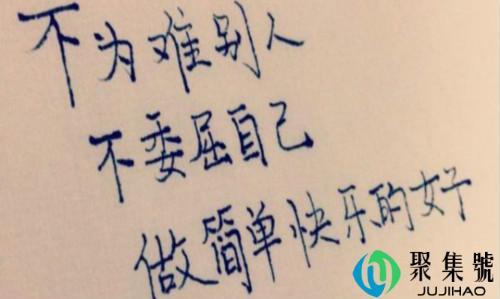 不为难别人
不委屈自己
做简单快乐的女子
聚集號
JUJIHAO